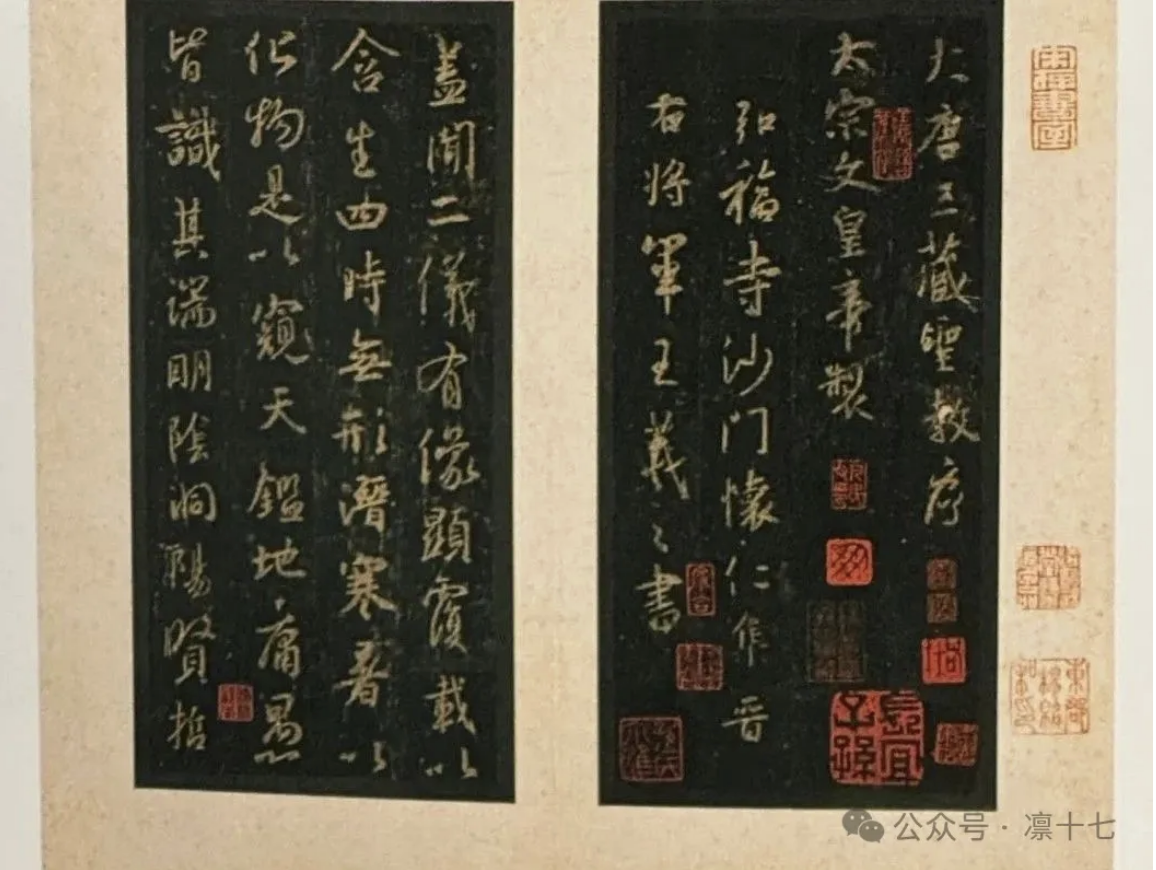 大唐三藏聖教序
太宗文皇帝製
弘福寺沙門懷仁集晉
右將軍王羲之書
蓋聞二儀有像顯覆載以
含生四時無形潛寒暑以
化物是以窺天鑑地庸愚
皆識其端明陰洞陽賢哲
長宜子孫
公众号·凛十七